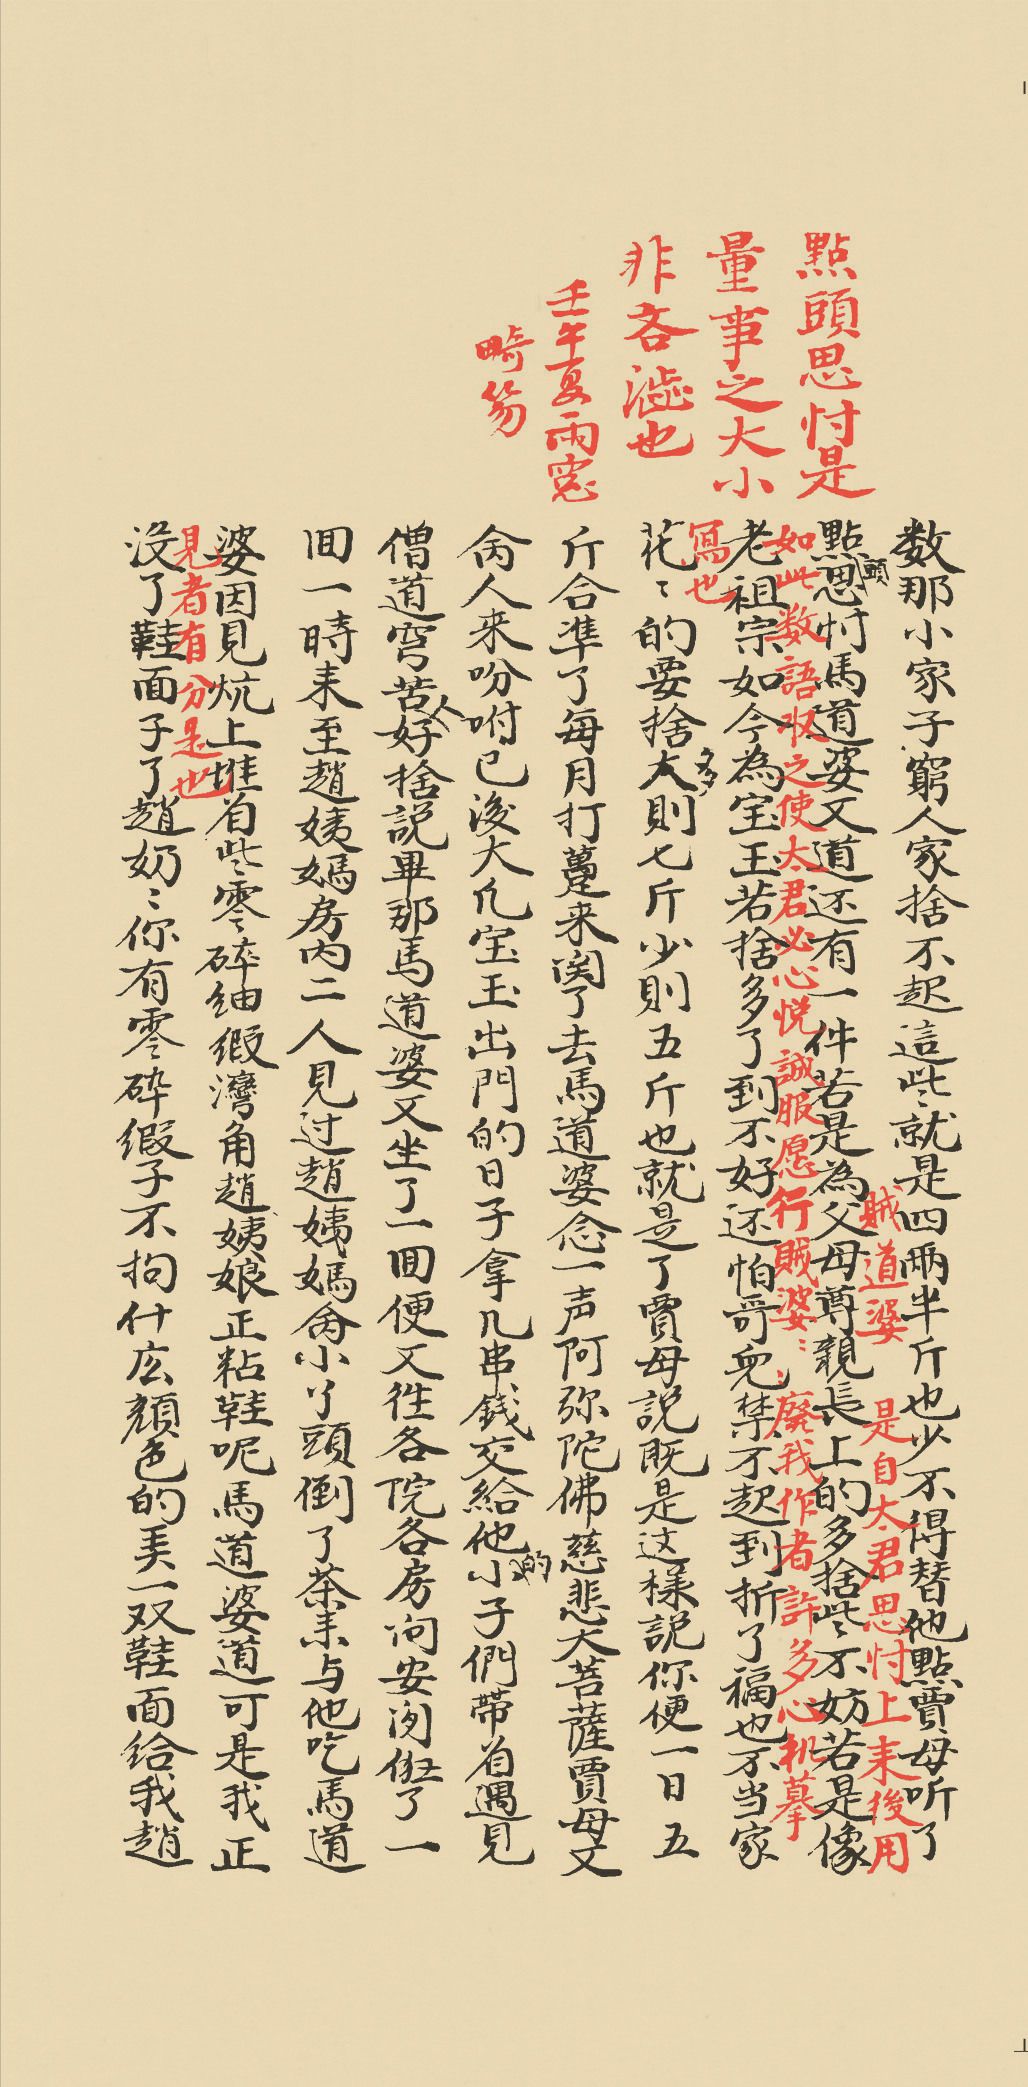 點頭思忖是
量事之大小
非吝澁也
壬午夏雨窓
畸笏
数那小家子窮人家捨不起這些就是四兩半斤也少不得替他點賈母听了
賊道婆 是自太君思忖上来後用
點頭思忖馬道婆又道还有一件若是為父母尊親長上的多捨些不妨若是像
如此数語収之使太君必心悦誠服愿行賊婆〻〻廢我作者許多心机摹
老祖宗如今為宝玉若捨多了到不好还怕哥児禁不起到折了福也不当家
寫也
花〻的要捨大則七斤少則五斤也就是了賈母説既是这様説你便一日五
多
斤合準了每月打躉来関了去馬道婆念一声阿弥陀佛慈悲大菩薩賈母又
命人来吩咐已後大凢宝玉出門的日子拿几串錢交給他的小子們帶着遇見
僧道穷苦人好捨説畢那馬道婆又坐了一囬便又徃各院各房问安闲俇了一
囬一時来至趙姨媽房内二人見过趙姨媽命小丫頭倒了茶来与他吃馬道
婆因見炕上堆着些零碎紬緞灣角趙姨娘正粘鞋呢馬道婆道可是我正
見者有分是也
没了鞋面子了趙奶〻你有零碎緞子不拘什庅顔色的美一双鞋面给我趙